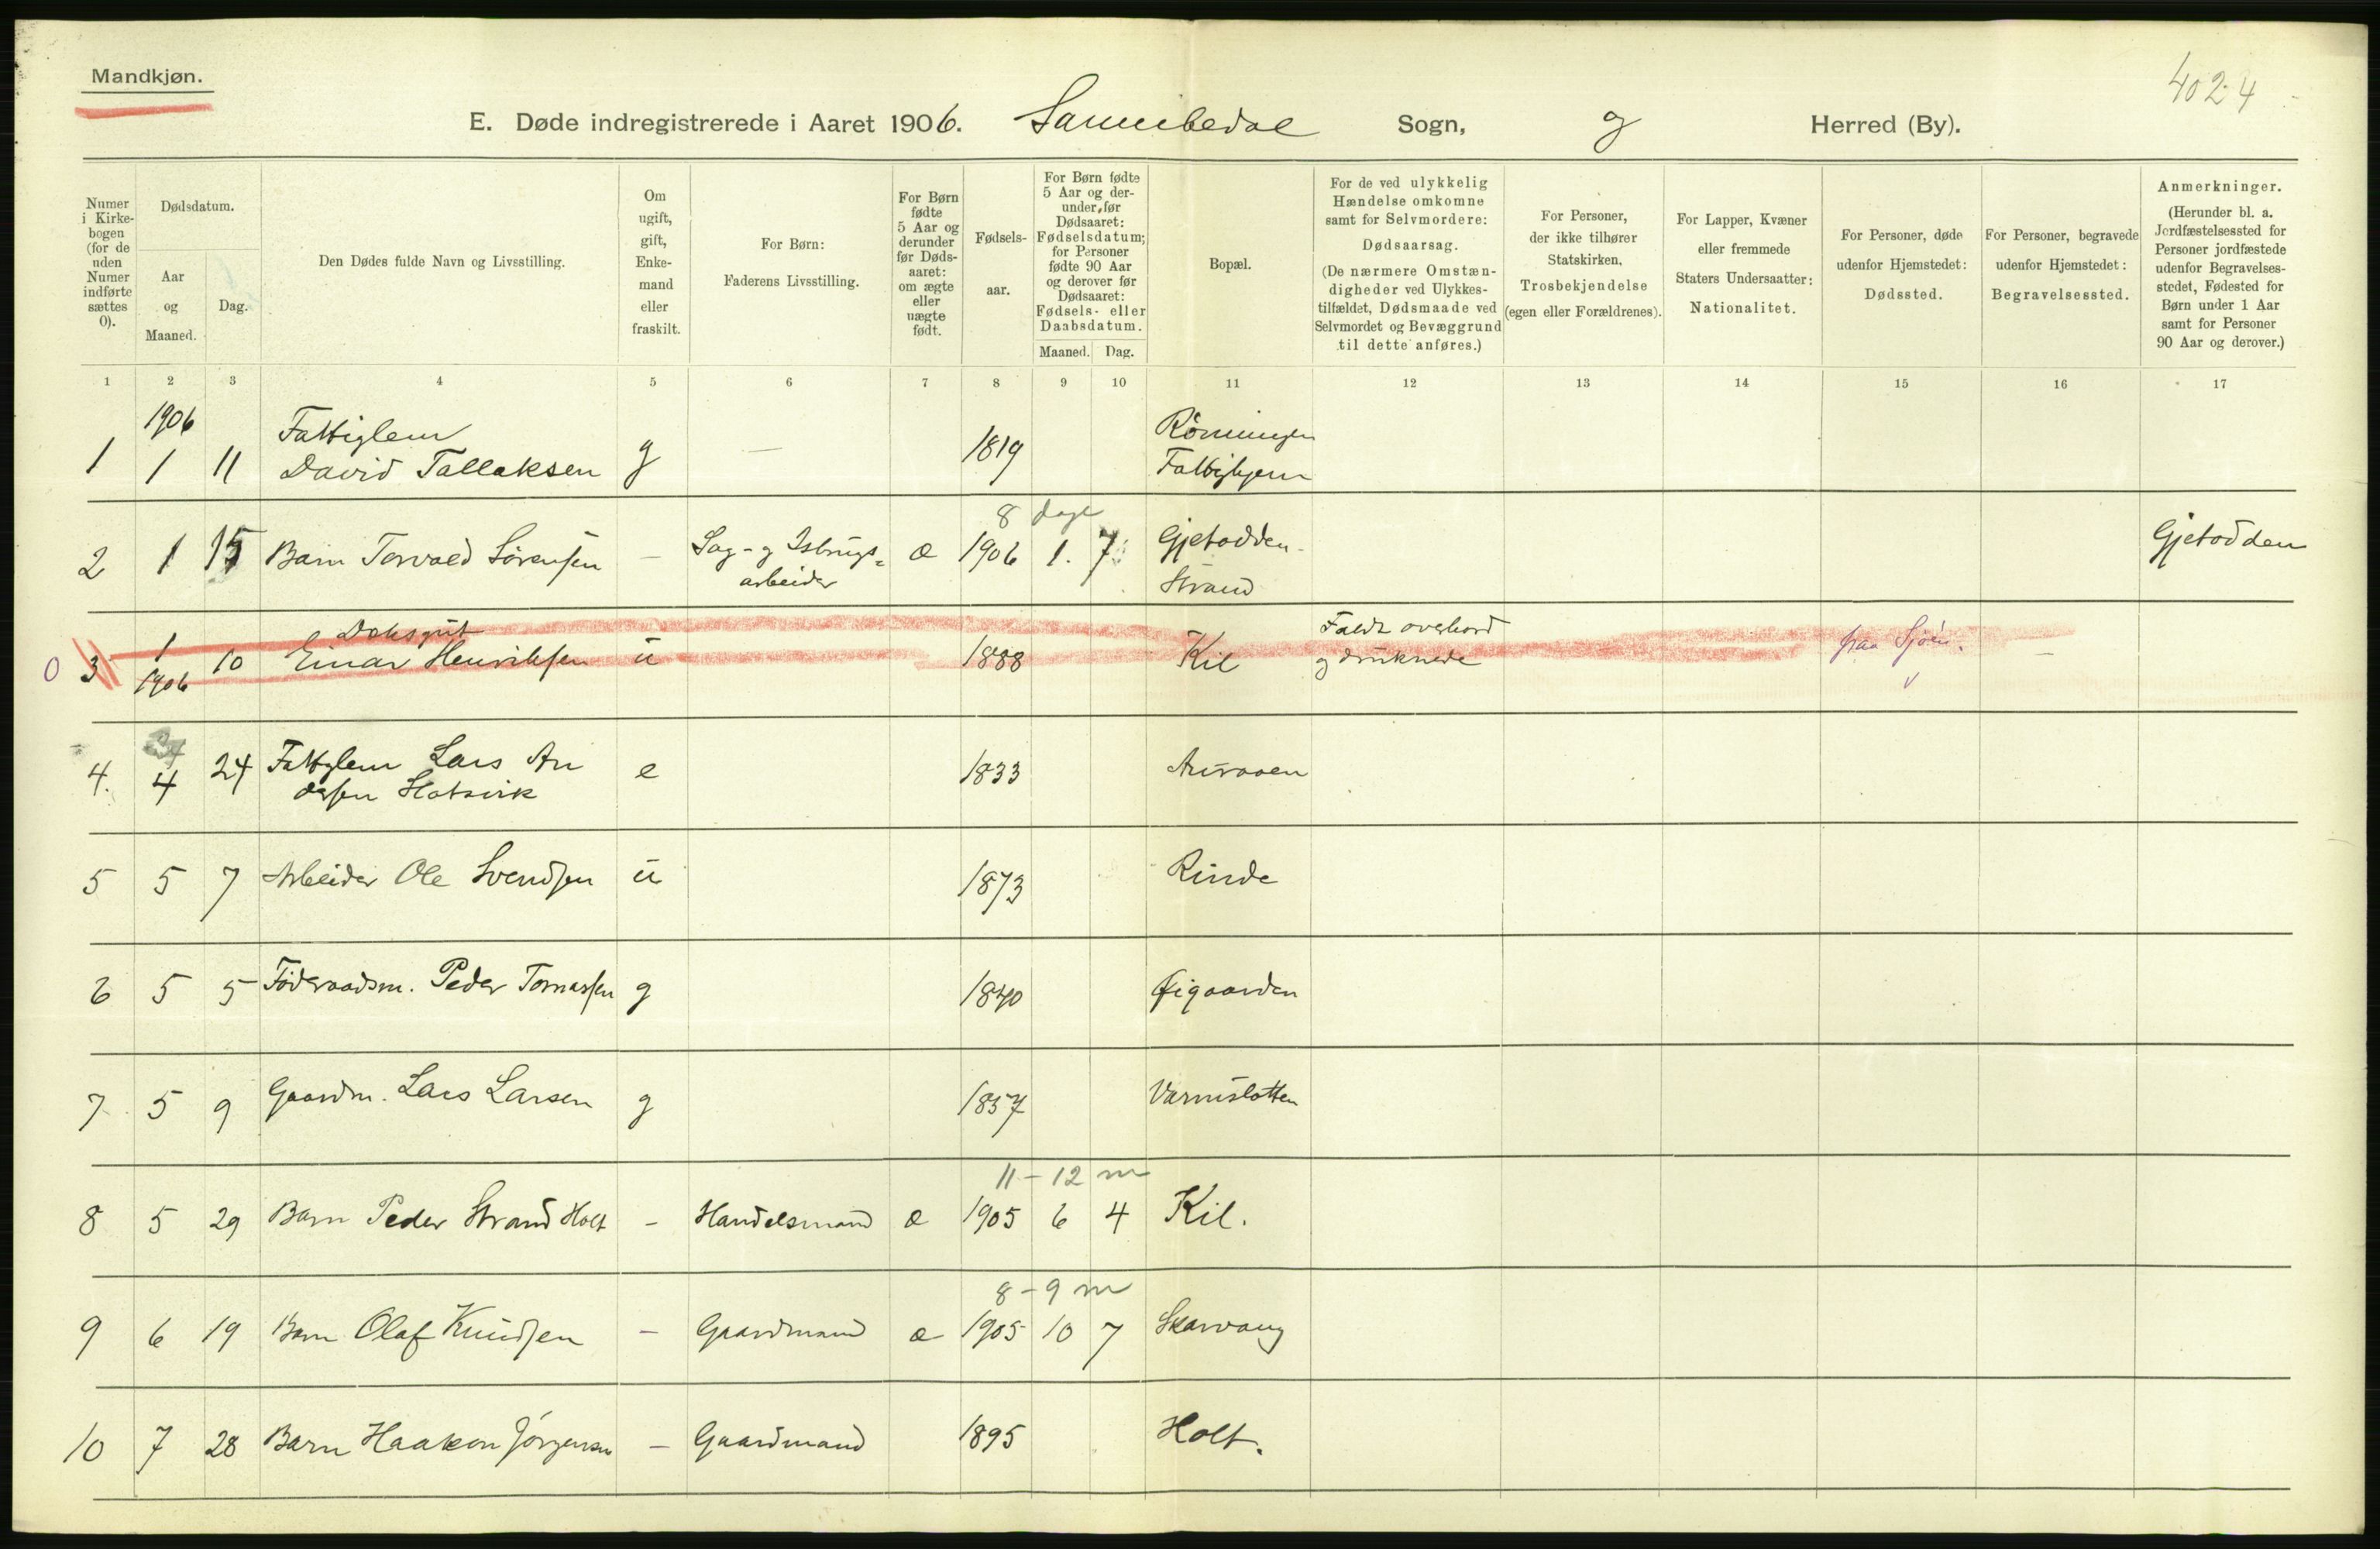 Mandkjøn.
4024
E. Døde indregistrerede i Aaret 1906. Sannikedal Sogn, g Herred (By).
Numer i Kirkebogen (for de uden Numer indførte sættes 0).
Dødsdatum.
Aar og Maaned.
Dag.
Den Dødes fulde Navn og Livsstilling.
Om ugift, gift, Enkemand eller fraskilt.
For Børn: Faderens Livsstilling.
For Børn fødte 5 Aar og derunder før Dødsaaret: om ægte eller uægte født.
Fødselsaar.
For Børn fødte 5 Aar og derunder, før Dødsaaret: Fødselsdatum; for Personer fødte 90 Aar og derover før Dødsaaret: Fødsels- eller Daabsdatum.
Maaned. Dag.
Bopæl.
For de ved ulykkelig Hændelse omkomne samt for Selvmordere: Dødsaarsag. (De nærmere Omstændigheder ved Ulykkestilfældet, Dødsmaade ved Selvmordet og Bevæggrund til dette anføres.)
For Personer, der ikke tilhører Statskirken, Trosbekjendelse (egen eller Forældrenes).
For Lapper, Kvæner eller fremmede Staters Undersaatter: Nationalitet.
For Personer, døde udenfor Hjemstedet: Dødssted.
For Personer, begravede udenfor Hjemstedet: Begravelsessted.
Anmerkninger. (Herunder bl. a. Jordfæstelsessted for Personer jordfæstede udenfor Begravelsesstedet, Fødested for Børn under 1 Aar samt for Personer 90 Aar og derover.)
1 2 3 4 5 6 7 8 9 10 11 12 13 14 15 16 17
1906 Fattiglem Rönningen
1 1 11 David Tallaksen g — 1819 Fattighjem
8 dage
2 1 15 Barn Torvald Sörensen — Sag- og Isbrugs- æ 1906 1. 7 Gjetodden Gjetodden
arbeider Strand
Deksgut Faldt overbord
0 3 1 10 Einar Henriksen u 1888 Kil og druknede paa Sjöen. —
1906
4. 4 24 Fattiglem Lars An e 1833
dersen
5 5 7 Arbeider Ole Svendsen u 1873 Rinde
6 5 5 Föderaadsm. Peder Tomassen g 1840 Øigaarden
7 5 9 Gaardm. Lars Larsen g 1837
11 - 12 m
8 5 29 Barn Peder Strand Holt - Handelsmand æ 1905 6 4 Kil.
8 - 9 m
9 6 19 Barn Olaf Knudsen - Gaardmand æ 1905 10 7 Skarvang
10 7 28 Barn Haakon Jörgensen - Gaardmand 1895 Holt.